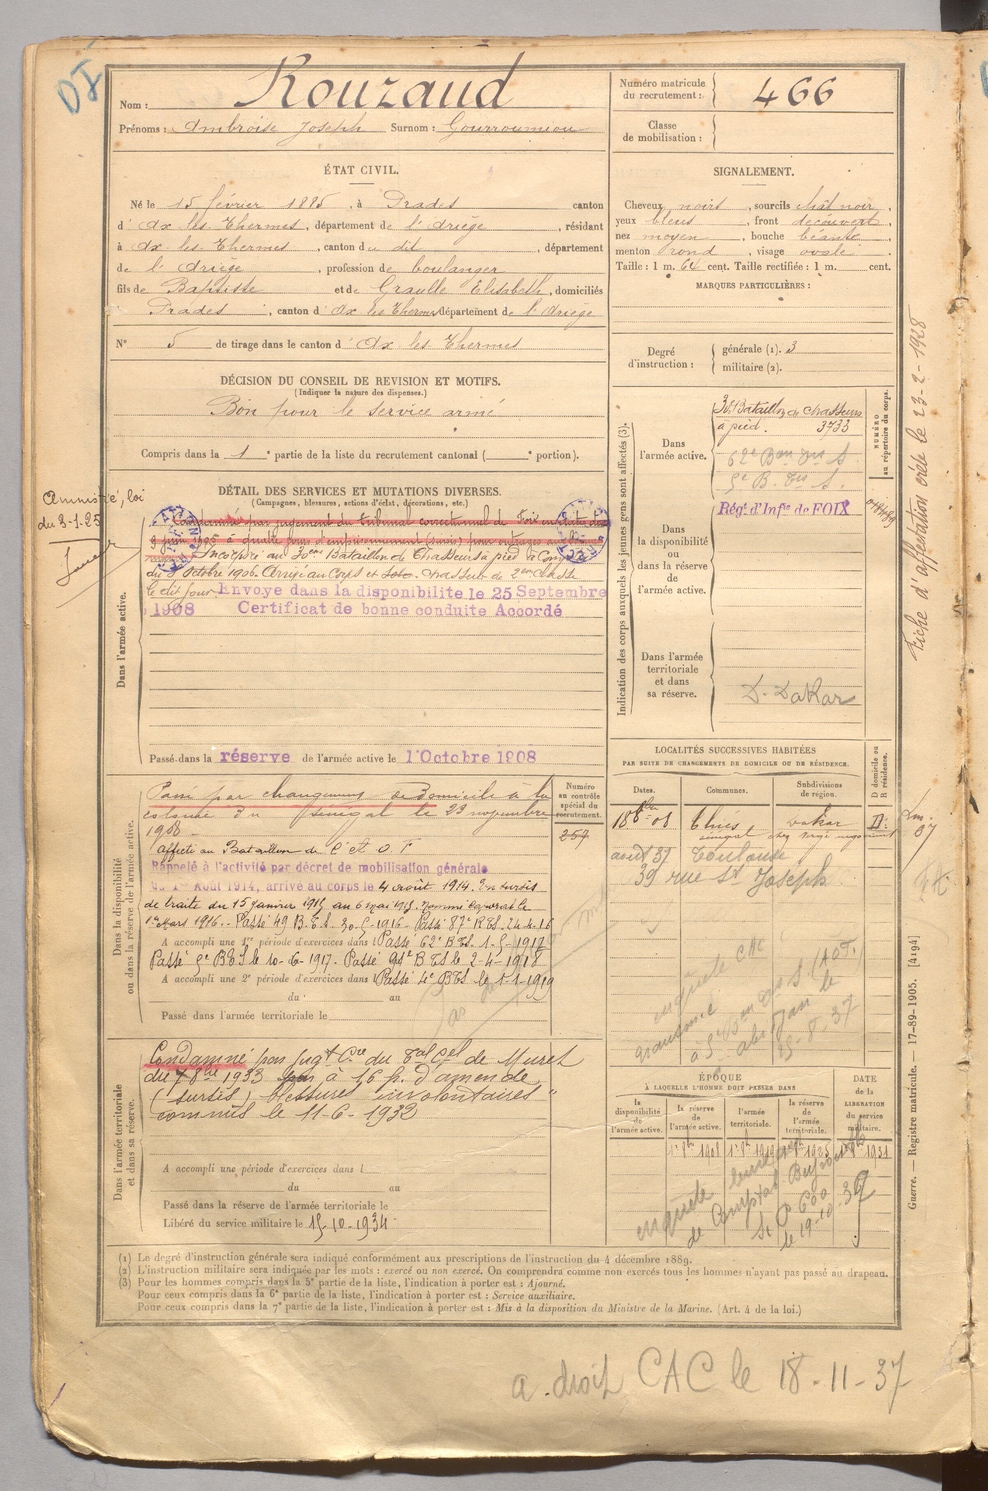 DI
Nom : Rouzaud
Prénoms : Ambroise Joseph Surnom : Gourroumeou
Numéro matricule du recrutement : 466
Classe de mobilisation :
ÉTAT CIVIL.
Né le 15 février 1885, à Prades canton
d'Ax les Thermes, département de l'Ariège, résidant
à Ax les Thermes, canton du dit, département
de l'Ariège, profession de boulanger
fils de Baptiste et de Graulle Elisabeth, domiciliés
Prades, canton d'Ax les Thermes département de l'Ariège
N° 5 de tirage dans le canton d'Ax les Thermes
SIGNALEMENT.
Cheveux noirs, sourcils chât noir,
yeux bleus, front découvert,
nez moyen, bouche béante,
menton rond, visage ovale.
Taille : 1 m. 64 cent. Taille rectifiée : 1 m. cent.
MARQUES PARTICULIÈRES :
Degré d'instruction : générale (1). 3
militaire (2).
DÉCISION DU CONSEIL DE REVISION ET MOTIFS.
(Indiquer la nature des dispenses.)
Bon pour le service armé
Compris dans la 1e partie de la liste du recrutement cantonal ( e portion).
DÉTAIL DES SERVICES ET MUTATIONS DIVERSES.
(Campagnes, blessures, actions d'éclat, décorations, etc.)
Amnistié, loi
du 3-1-25
Dans l'armée active.
Condamné par jugement du tribunal correctionnel de Foix en date du
Incorporé au 30eme Bataillon de Chasseurs à pied à compter
du 8 octobre 1906. Arrivé au corps et chasseur de 2eme classe
le dit jour. Envoye dans la disponibilite le 25 Septembre
1908 Certificat de bonne conduite Accordé
Passé dans la réserve de l'armée active le 1er Octobre 1908
Dans la disponibilité ou dans la réserve de l'armée active.
Passé par changement de Domicile à la
colonie du Sénégal le 23 novembre
1908
Affecté au Bataillon de l'A. O. F
Rappelé à l'activité par décret de mobilisation générale
du 1er Août 1914, arrivé au corps le 4 août 1914. En sursis
de traite du 15 janvier 1915 au 6 mai 1915. Nommé caporal le
1er Mars 1916. Passé 49 B.T.S. 30-5-1916 Passé 87e BTS. 24-8-16
A accompli une 1re période d'exercices dans l Passé 62e BTS. 1-5-1917
Passé 5e BTS le 10-6-1917. Passé 98e BTS le 2-4-1918
A accompli une 2e période d'exercices dans l Passé 4e BTS le 1-1-1919
du au
Passé dans l'armée territoriale le
Numéro au contrôle spécial du recrutement.
257
Dans l'armée territoriale et dans sa réserve.
Condamné par Jugt Cre du Tal Cel de Muret
du 7 8bre 1933 à 16 f. d'amende
(sursis) "blessures involontaires"
commis le 11-6-1933
A accompli une période d'exercices dans l
du au
Passé dans la réserve de l'armée territoriale le
Libéré du service militaire le 15-10-1934
Indication des corps auxquels les jeunes gens sont affectés (3).
NUMÉRO au répertoire du corps.
Dans l'armée active.
30e Bataillon de chasseurs
à pied. 3733
62e Bon
5e B.
Dans la disponibilité ou dans la réserve de l'armée active.
Régt d'Infie de FOIX
Dans l'armée territoriale et dans sa réserve.
D. Dakar
LOCALITÉS SUCCESSIVES HABITÉES
PAR SUITE DE CHANGEMENTS DE DOMICILE OU DE RÉSIDENCE.
Dates. Communes. Subdivisions de région. D domicile ou R résidence.
18 8bre 08 Thiès Dakar D.
août 37 Toulouse
39 rue St Joseph
enquête CAC
15-8-37
ÉPOQUE
À LAQUELLE L'HOMME DOIT PASSER DANS
la disponibilité de l'armée active. la réserve de l'armée active. l'armée territoriale. la réserve de l'armée territoriale. DATE de la LIBÉRATION du service militaire.
enquête
le 19-10-37
Fiche d'affectation créée le 23-2-1928
Guerre. — Registre matricule. — 17-89-1905. [4194]
(1) Le degré d'instruction générale sera indiqué conformément aux prescriptions de l'instruction du 4 décembre 1889.
(2) L'instruction militaire sera indiquée par les mots : exercé ou non exercé. On comprendra comme non exercés tous les hommes n'ayant pas passé au drapeau.
(3) Pour les hommes compris dans la 5e partie de la liste, l'indication à porter est : Ajourné.
Pour ceux compris dans la 6e partie de la liste, l'indication à porter est : Service auxiliaire.
Pour ceux compris dans la 7e partie de la liste, l'indication à porter est : Mis à la disposition du Ministre de la Marine. (Art. 4 de la loi.)
a droit CAC le 18-11-37